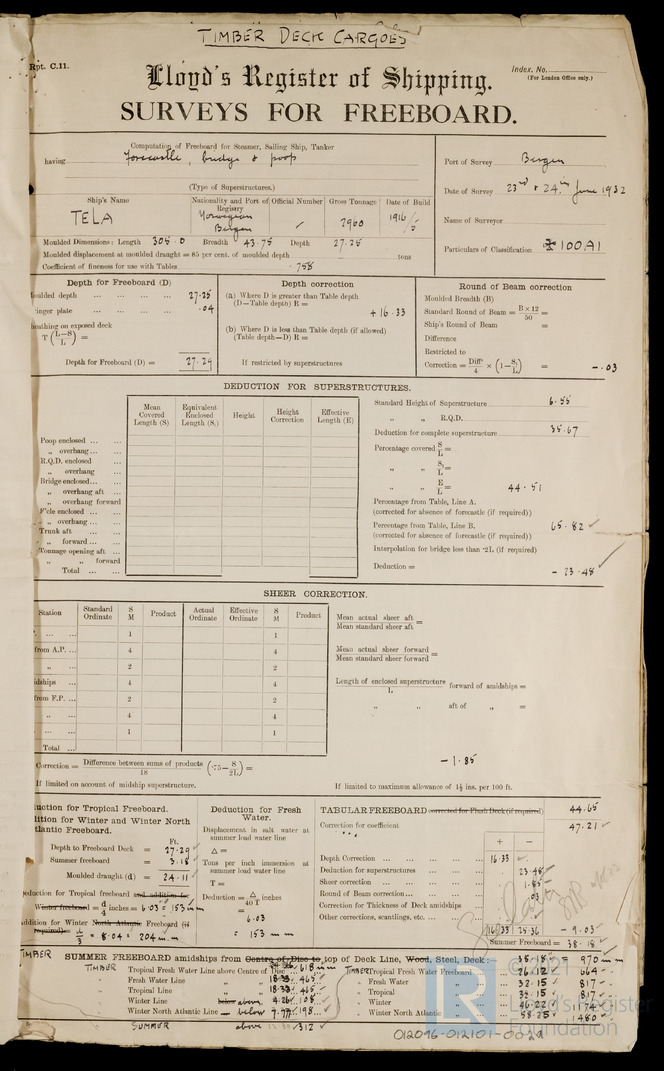 TIMBER DECK CARGOES
Rpt. C.11.
Index. No.
(For London Office only.)
Lloyd's Register of Shipping.
SURVEYS FOR FREEBOARD.
Computation of Freeboard for Steamer, Sailing Ship, Tanker
having forecastle, bridge & poop
(Type of Superstructures.)
Port of Survey Bergen
Date of Survey 23rd & 24th June 1932
Name of Surveyor
Particulars of Classification ✠ 100A1
Ship's Name Nationality and Port of Registry Official Number Gross Tonnage Date of Build
TELA Norwegian Bergen / 1916/5
Moulded Dimensions: Length 305.0 Breadth 43.75 Depth 27.25
Moulded displacement at moulded draught = 85 per cent. of moulded depth tons
Coefficient of fineness for use with Tables .755
Depth for Freeboard (D)
oulded depth ... ... ... 27.25
ringer plate ... ... ... .04
heathing on exposed deck
T (L-S/L) =
Depth for Freeboard (D) = 27.29
Depth correction
(a) Where D is greater than Table depth
(D—Table depth) R = + 16.33
(b) Where D is less than Table depth (if allowed)
(Table depth—D) R =
If restricted by superstructures
Round of Beam correction
Moulded Breadth (B)
Standard Round of Beam = B × 12/50 =
Ship's Round of Beam =
Difference
Restricted to
Correction = Diff/4 × (1 - S₁/L) = - .03
DEDUCTION FOR SUPERSTRUCTURES.
Mean Covered Length (S) Equivalent Enclosed Length (S₁) Height Height Correction Effective Length (E)
Poop enclosed ... ...
„ overhang ... ...
R.Q.D. enclosed ...
„ overhang ...
Bridge enclosed... ...
„ overhang aft ...
„ overhang forward
F'cle enclosed ... ...
„ overhang ... ...
Trunk aft ... ...
„ forward ... ...
Tonnage opening aft ...
„ „ forward
Total ... ...
Standard Height of Superstructure 6.55
„ „ R.Q.D.
Deduction for complete superstructure 35.67
Percentage covered S/L =
„ „ S₁/L =
„ „ E/L = 44.51
Percentage from Table, Line A.
(corrected for absence of forecastle (if required))
Percentage from Table, Line B. 65.82 ✓
(corrected for absence of forecastle (if required))
Interpolation for bridge less than ·2L (if required)
Deduction = - 23.48 ✓
SHEER CORRECTION.
Station Standard Ordinate S M Product Actual Ordinate Effective Ordinate S M Product
. ... ... 1 1
from A.P. ... 4 4
„ ... 2 2
idships ... 4 4
from F.P. ... 2 2
„ ... 4 4
... ... 1 1
Total ...
Mean actual sheer aft / Mean standard sheer aft =
Mean actual sheer forward / Mean standard sheer forward =
Length of enclosed superstructure / L forward of amidships =
„ „ aft of „ =
Correction = Difference between sums of products / 18 (·75 - S/2L) = - 1.85
If limited on account of midship superstructure.
If limited to maximum allowance of 1½ ins. per 100 ft.
uction for Tropical Freeboard.
ition for Winter and Winter North
tlantic Freeboard.
Ft.
Depth to Freeboard Deck = 27.29 ✓
Summer freeboard = 3.18 ✓
Moulded draught (d) = 24.11 ✓
eduction for Tropical freeboard and addition for
Winter freeboard = d/4 inches = 6.03 = 153 mm
ddition for Winter North Atlantic Freeboard (if
required) = d/3 = 8.04 = 204 mm
Deduction for Fresh Water.
Displacement in salt water at
summer load water line
Δ =
Tons per inch immersion at
summer load water line
T =
Deduction = Δ/40 T inches
= 6.03
= 153 mm
TABULAR FREEBOARD corrected for Flush Deck (if required) 44.65
Correction for coefficient 47.21 ✓
+ -
Depth Correction ... ... ... ... 16.33
Deduction for superstructures ... ... 23.48
Sheer correction ... ... ... 1.85
Round of Beam correction ... ... .03
Correction for Thickness of Deck amidships
Other corrections, scantlings, etc. ... ...
16.33 25.36 - 9.03
Summer Freeboard = 38.18 ✓
TIMBER SUMMER FREEBOARD amidships from Centre of Disc to top of Deck Line, Wood, Steel, Deck: 38.18 = 970 mm
TIMBER Tropical Fresh Water Line above Centre of Disc 618 mm
TIMBER Tropical Fresh Water Freeboard 26.12 664
Fresh Water Line „ „ 18.33 465
„ Fresh Water „ 32.15 817
Tropical Line „ „ 18.33 465
„ Tropical „ 32.15 817
Winter Line below above „ 4.26 108
„ Winter „ 46.22
Winter North Atlantic Line below „ 198
„ Winter North Atlantic „ 58.25 1480
SUMMER above 312 ✓
012096-012101-0029
© 2021
Lloyd's Register
Foundation